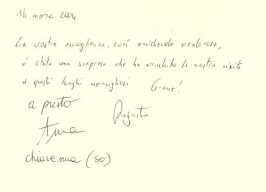 14 marzo 2004
La vostra accoglienza, così
è stata una sorpresa che ha arricchito la nostra visita
a questi luoghi meravigliosi Grazie!
a presto
Anna Augusto
chiavenna (SO)